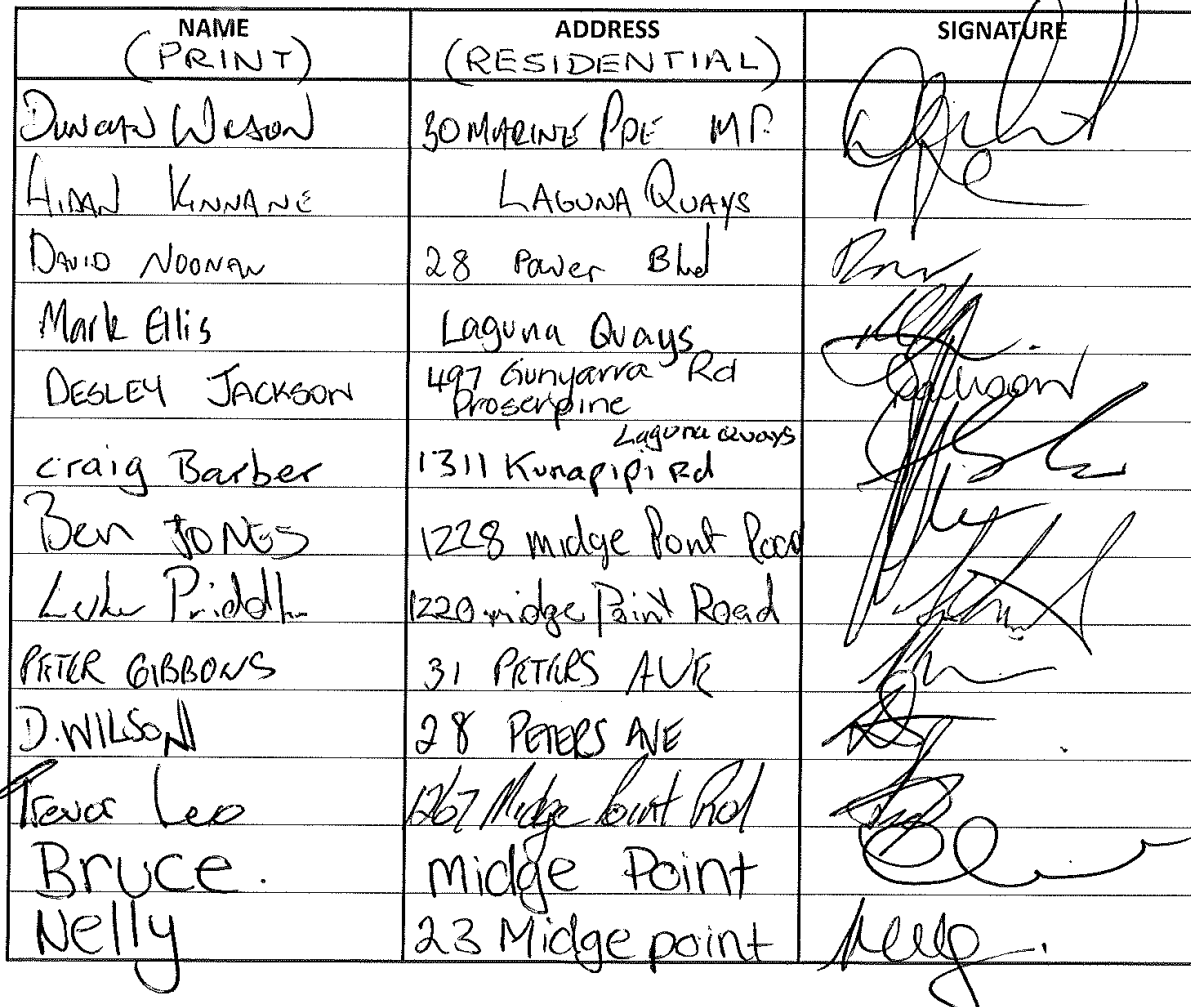 NAME ADDRESS SIGNATURE
(PRINT) (RESIDENTIAL)
DUNCAN WILSON 30 MARINE PDE MP.
AIDAN KINNANE LAGUNA QUAYS
DAVID NOONAN 28 Power Blvd
Mark Ellis Laguna Quays
DESLEY JACKSON 497 Gunyarra Rd
Proserpine
Laguna Quays
craig Barber 1311 Kunapipi Rd
Ben JONES 1228 midge Pont Road
Luke 1220 midge Point Road
PETER GIBBONS 31 PETERS AVE
D. WILSON 28 PETERS AVE
Trevor Leo 1267 Midge Point Rd
Bruce. Midge Point
Nelly 23 Midge point